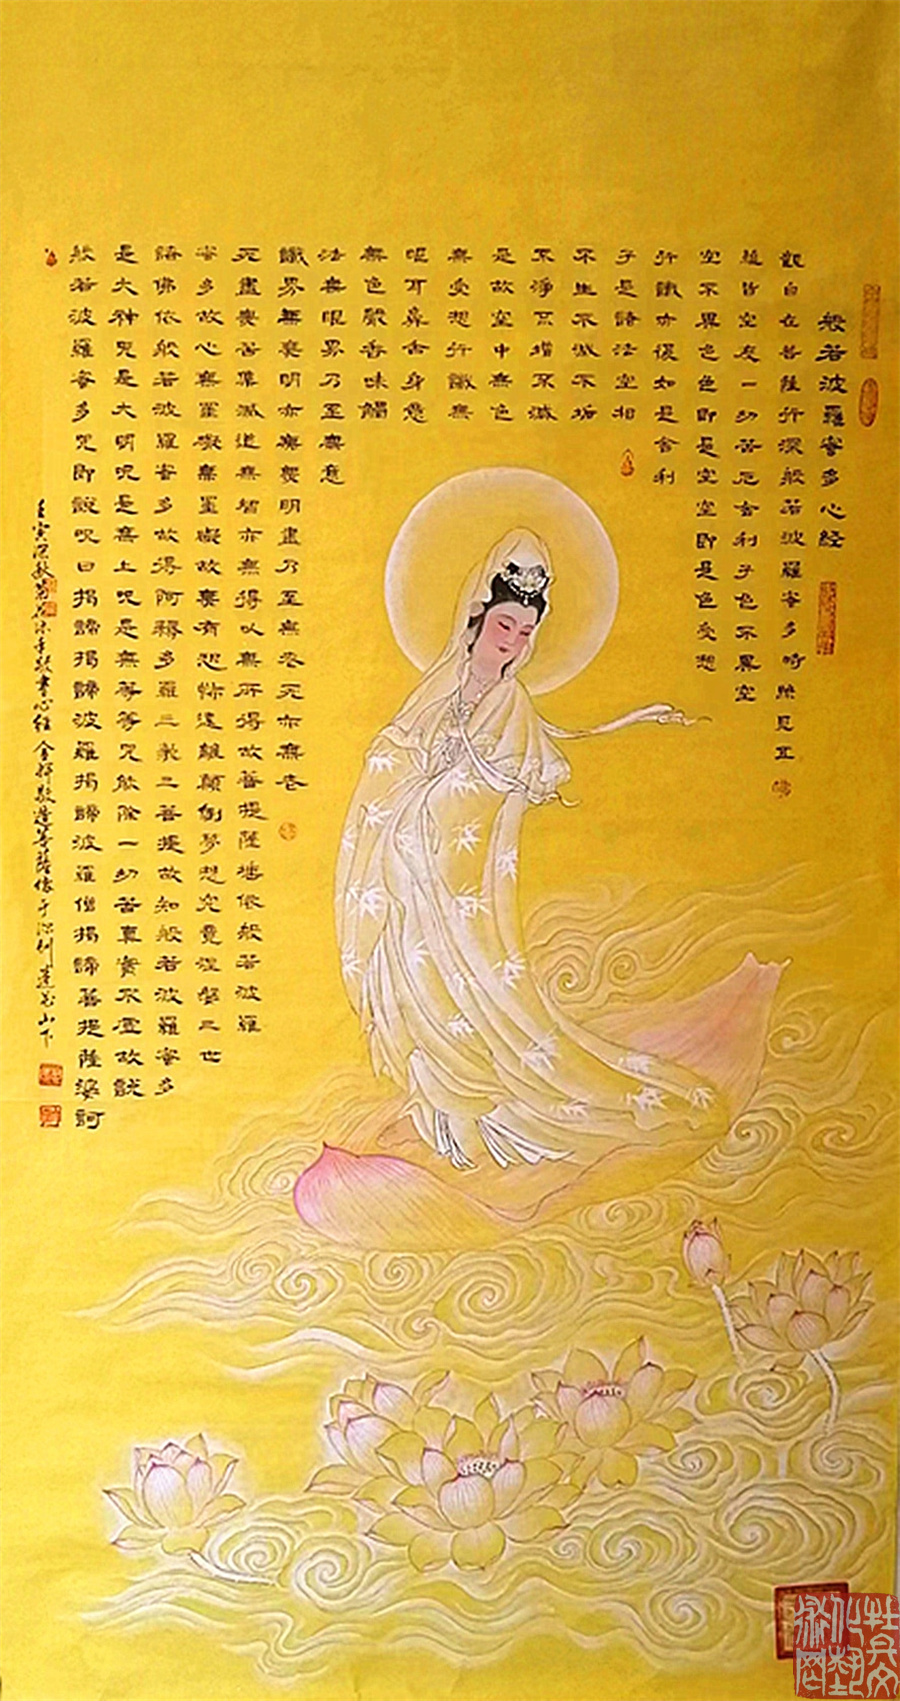 般若波羅蜜多心経
觀自在菩薩行深般若波羅蜜多時照見五
蘊皆空度一切苦厄舍利子色不異空
空不異色色即是空空即是色受想
行識亦復如是舍利
子是諸法空相
不生不滅不垢
不淨不增不減
是故空中無色
無受想行識無
眼耳鼻舌身意
無色聲香味觸
法無眼界乃至無意
識界無無明亦無無明盡乃至無老死亦無老
死盡無苦集滅道無智亦無得以無所得故菩提薩埵依般若波羅
蜜多故心無罣礙無罣礙故無有恐怖遠離顛倒夢想究竟涅槃三世
諸佛依般若波羅蜜多故得阿耨多羅三藐三菩提故知般若波羅蜜多
是大神咒是大明呪是無上呪是無等等咒能除一切苦真實不虛故說
般若波羅蜜多咒即說呪曰揭諦揭諦波羅揭諦波羅僧揭諦菩提薩婆訶
壬寅深秋沐手敬書心経 金輝敬造菩薩像于深圳蓮花山下